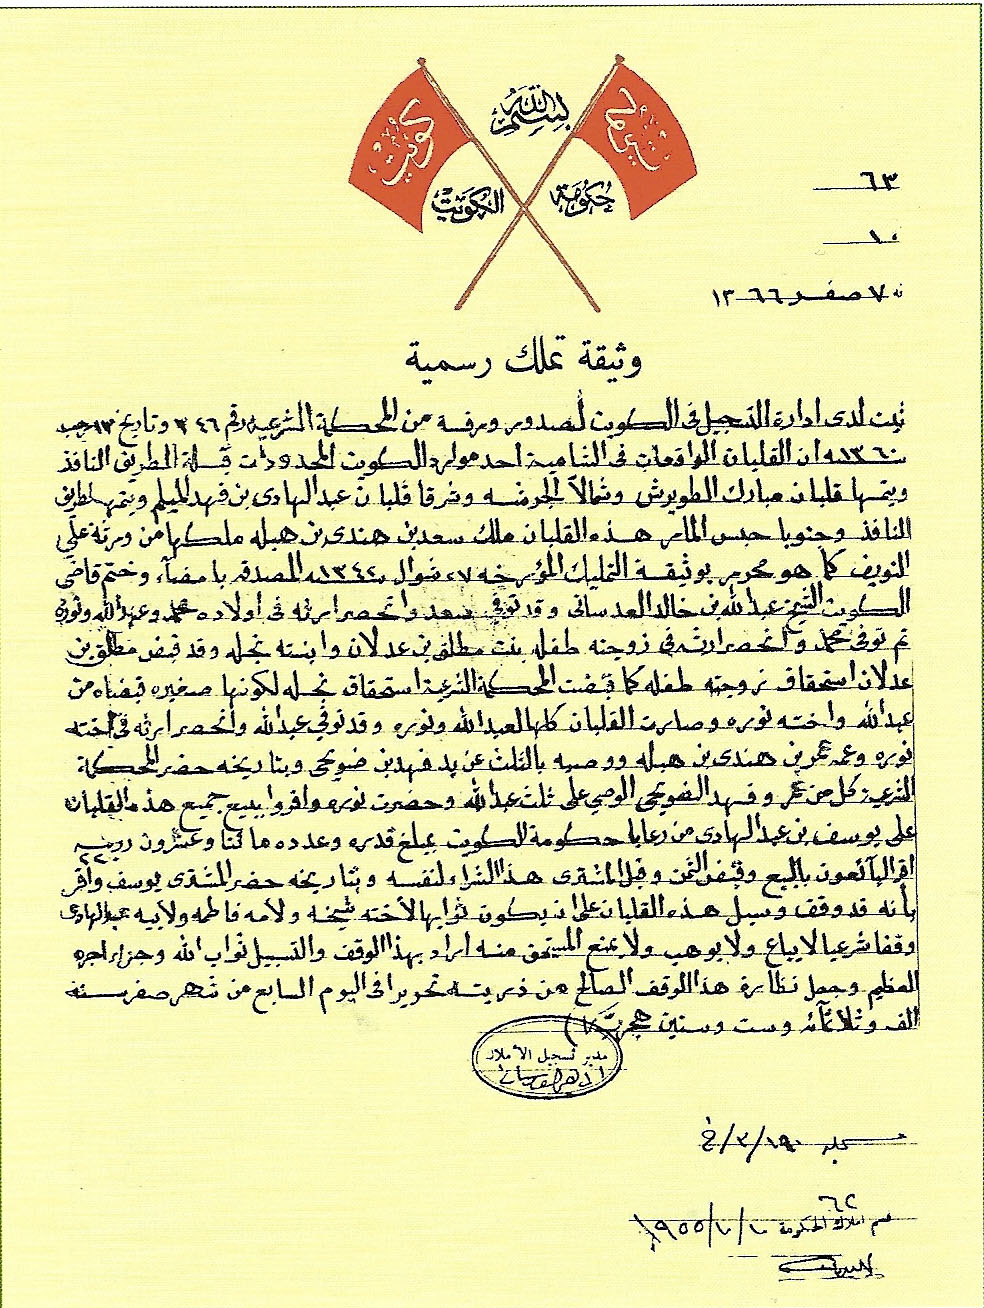 بسم الله
كويت
كويت
حكومة الكويت
٦٣
١٠
٧ صفر ١٣٦٦
وثيقة تملك رسمية
ثبت لدى ادارة التسجيل في الكويت لصدور ورقة من المحكمة الشرعية رقم ٣٤٦ وتاريخ ١٣ رجب
١٣٦٠ ان القلبان الواقعات في الشامية احد موارد الكويت المحدودات قبلة الطريق النافذ
ويتمها قلبان مبارك الطويرش وشمالاً وشرقا قلبان عبد الهادي بن فهد الميلم ويتمها لطريق
النافذ وجنوبا حبس الماء هذه القلبان ملك سعد بن هندي بن هبله ملكها من ورثة علي
النويف كما هو محرر بوثيقة التمليك المؤرخه ٢٧ شوال ١٣٤٤ المصدقه بامضاء وختم قاضي
الكويت الشيخ عبدالله بن خالد العدساني وقد توفي سعد وانحصر ارثه في اولاده محمد وعبدالله ونوره
ثم توفي محمد وانحصر ارثه في زوجته طفله بنت مطلق بن عدلان وابنته نجله وقد قبض مطلق بن
عدلان استحقاق زوجته طفله كما قبضت المحكمة الشرعية استحقاق نجله لكونها صغيره قبضاه من
عبدالله واخته نوره وصارت القلبان كلها لعبدالله ونوره وقد توفي عبدالله وانحصر ارثه في اخته
نوره وعمه عمر بن هندي بن هبله ووصيه بالثلث عن يد فهد بن ضويحي وبتاريخه حضر المحكمة
الشرعية كل من عمر وفهد الضويحي الوصي على ثلث عبدالله وحضرت نوره واقروا ببيع جميع هذه القلبان
على يوسف بن عبد الهادي من رعايا حكومة الكويت بمبلغ قدره وعدده مائتا وعشرون روبيه
٢٢
اقر البائعون بالبيع وقبض الثمن وقبل المشتري هذا الشراء لنفسه وبتاريخه حضر المشتري يوسف واقر
بأنه قد وقف وسبل هذه القلبان على ان يكون ثوابها لأخته شيخه ولأمه فاطمه ولأبيه عبدالهادي
وقفا شرعيا لا يباع ولا يوهب ولا يمنع المستحق منه اراد بهذا الوقف والتسبيل ثواب الله وجزاء اجره
العظيم وجعل نظارة هذا الوقف الصالح من ذريته تحريرا في اليوم السابع من شهر صفر سنة
الف وثلاثمائه وست وستين هجرية
مدير تسجيل الأملاك
٢/١٩٠
٦٢
قسم املاك الحكومة ١٩٥٥/١٠/١٠